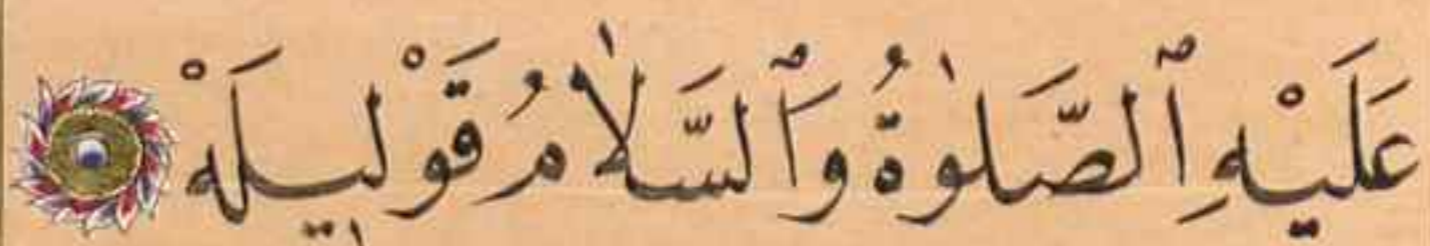 عَلَيْهِ ٱلصَّلٰوةُ وَٱلسَّلَٰامُ قَوْلِيلَهْ